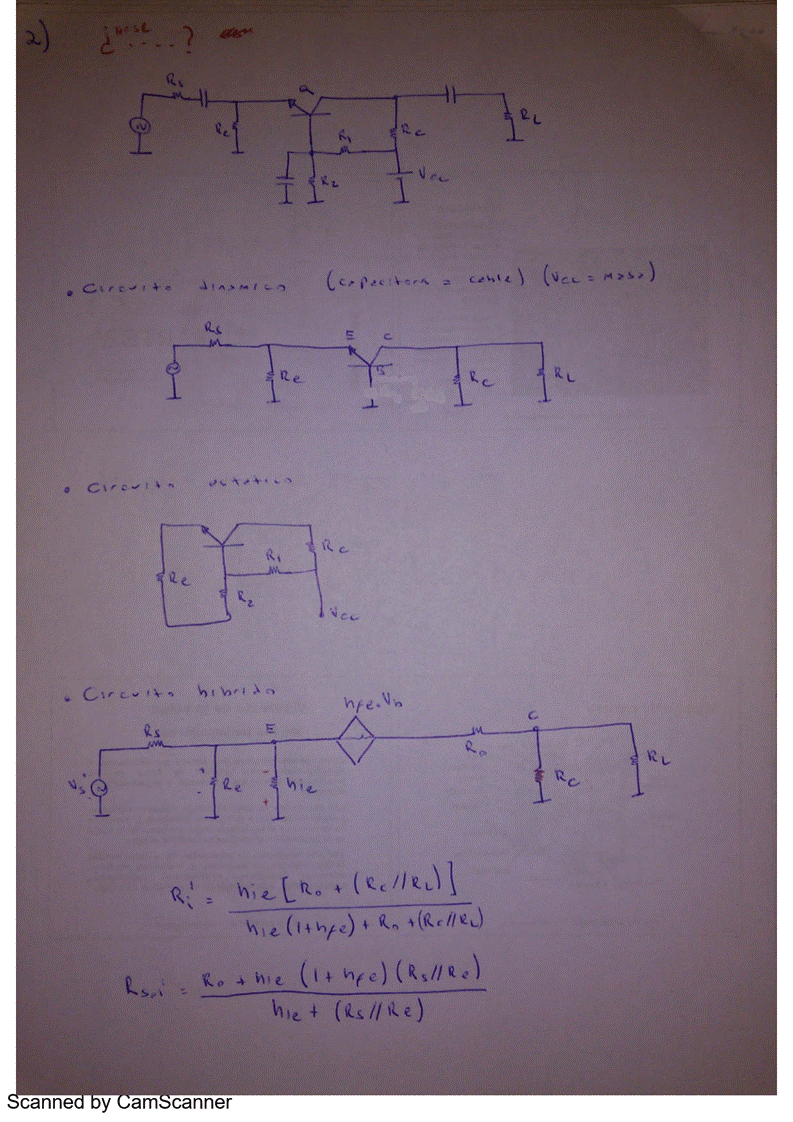 2) ¿ .....?
Rs Q
Re R1 Rc RL
R2 Vcc
• Circuito dinámico (capacitora = cable) (Vcc = masa)
Rs E C
Re B Rc RL
• Circuito estático
R1 Rc
Re R2
Vcc
• Circuito híbrido
hfe.Vb
Rs E Ro C
Vs Re hie Rc RL
+ -
- +
Ri' = hie [Ro + (Rc//RL)]
hie (1+hfe) + Ro + (Rc//RL)
Ro + hie (1 + hfe) (Rs//Re)
hie + (Rs//Re)
Scanned by CamScanner